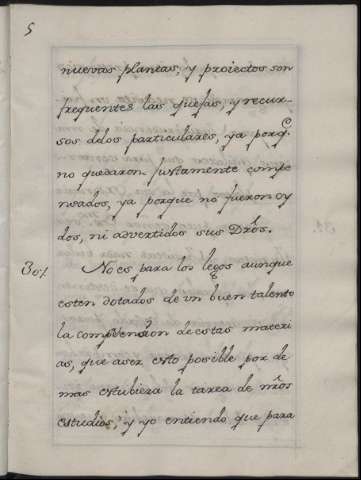 5
nuevas plantas, y proiectos son
frequentes las quejas, y recur-
sos delos particulares, ya porq.e
no quedaron justamente compe
nsados, ya porque no fueron oy
dos, ni advertidos sus Dros.
30,, No es para los legos aunque
esten dotados de un buen talento
la comprension de estas materi
as, que aser esto posible por de
mas estubiera la tarea de nros
estudios, y yo entiendo que para